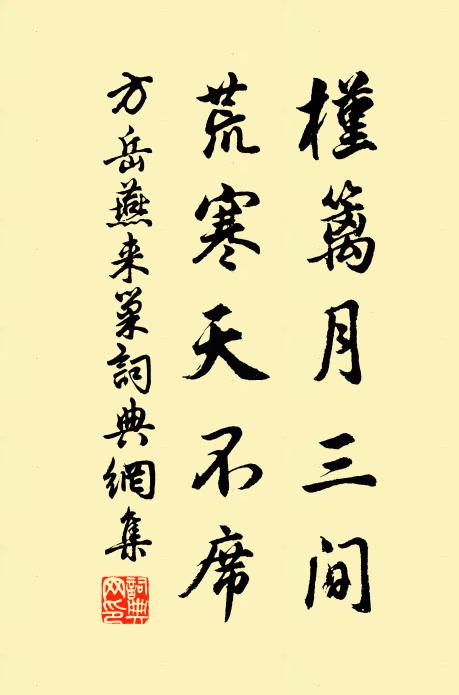 槿篱月三间
荒寒天不席
方岳燕来巢詞典網集
詞典网印